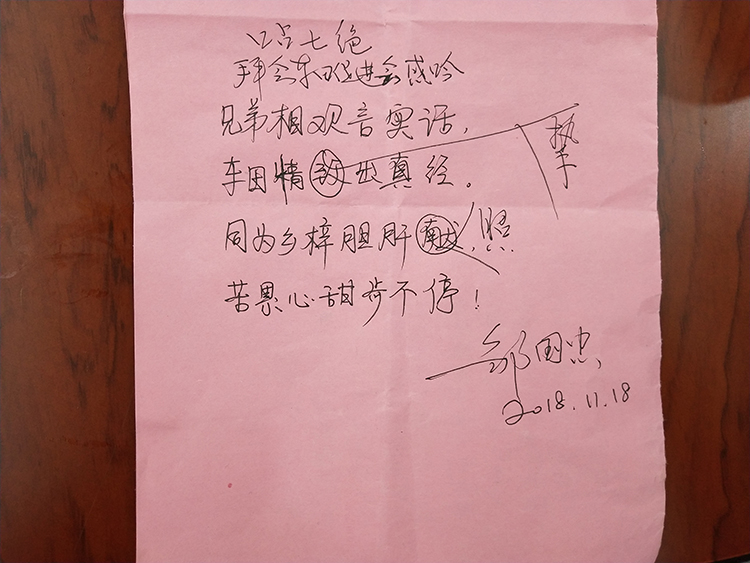 口占七绝
拜会东促进会感吟
兄弟相观音实话,
车田情出真经。
挚
同为乡梓胆肝献,照
苦累心甜步不停!
邹国忠
2018.11.18